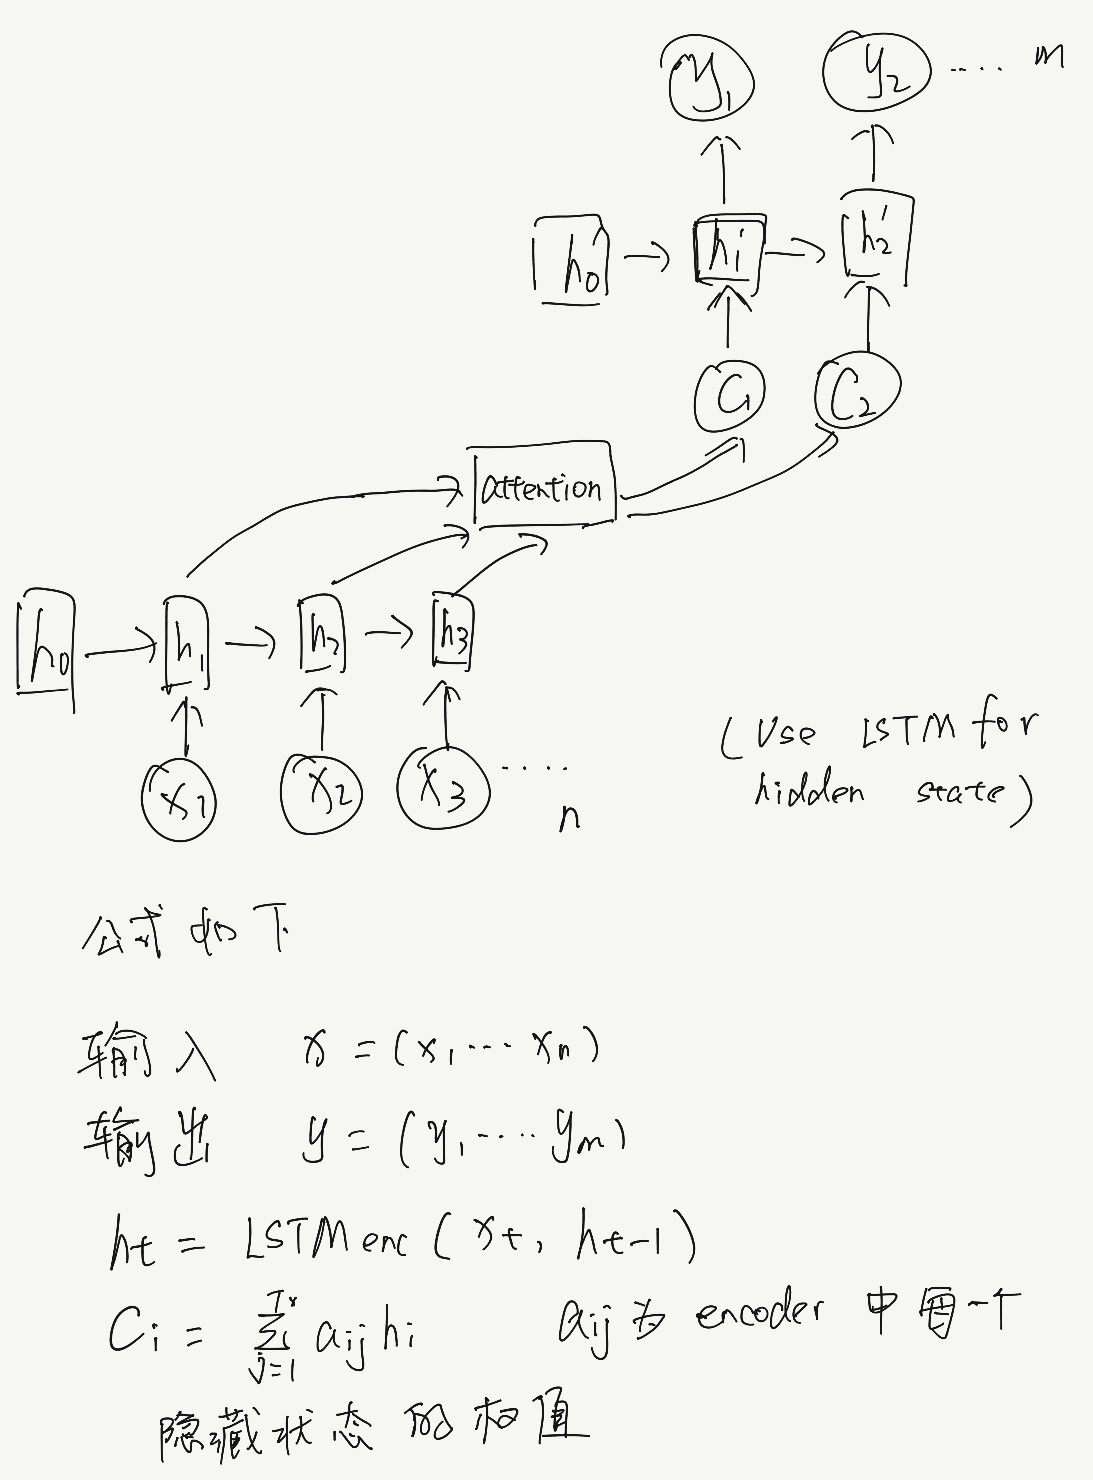 y₁ y₂ ..... m
h₀' h₁' h₂'
C₁ C₂
attention
h₀ h₁ h₂ h₃
(Use LSTM for
hidden state)
x₁ x₂ x₃ .....
n
公式如下
输入 x = (x₁ ... xₙ)
输出 y = (y₁ .... yₘ)
hₜ = LSTM enc (xₜ, hₜ₋₁)
Cᵢ = Σ_{j=1}^{Tₓ} aᵢⱼ hᵢ aᵢⱼ为 encoder 中每一个
隐藏状态的权值